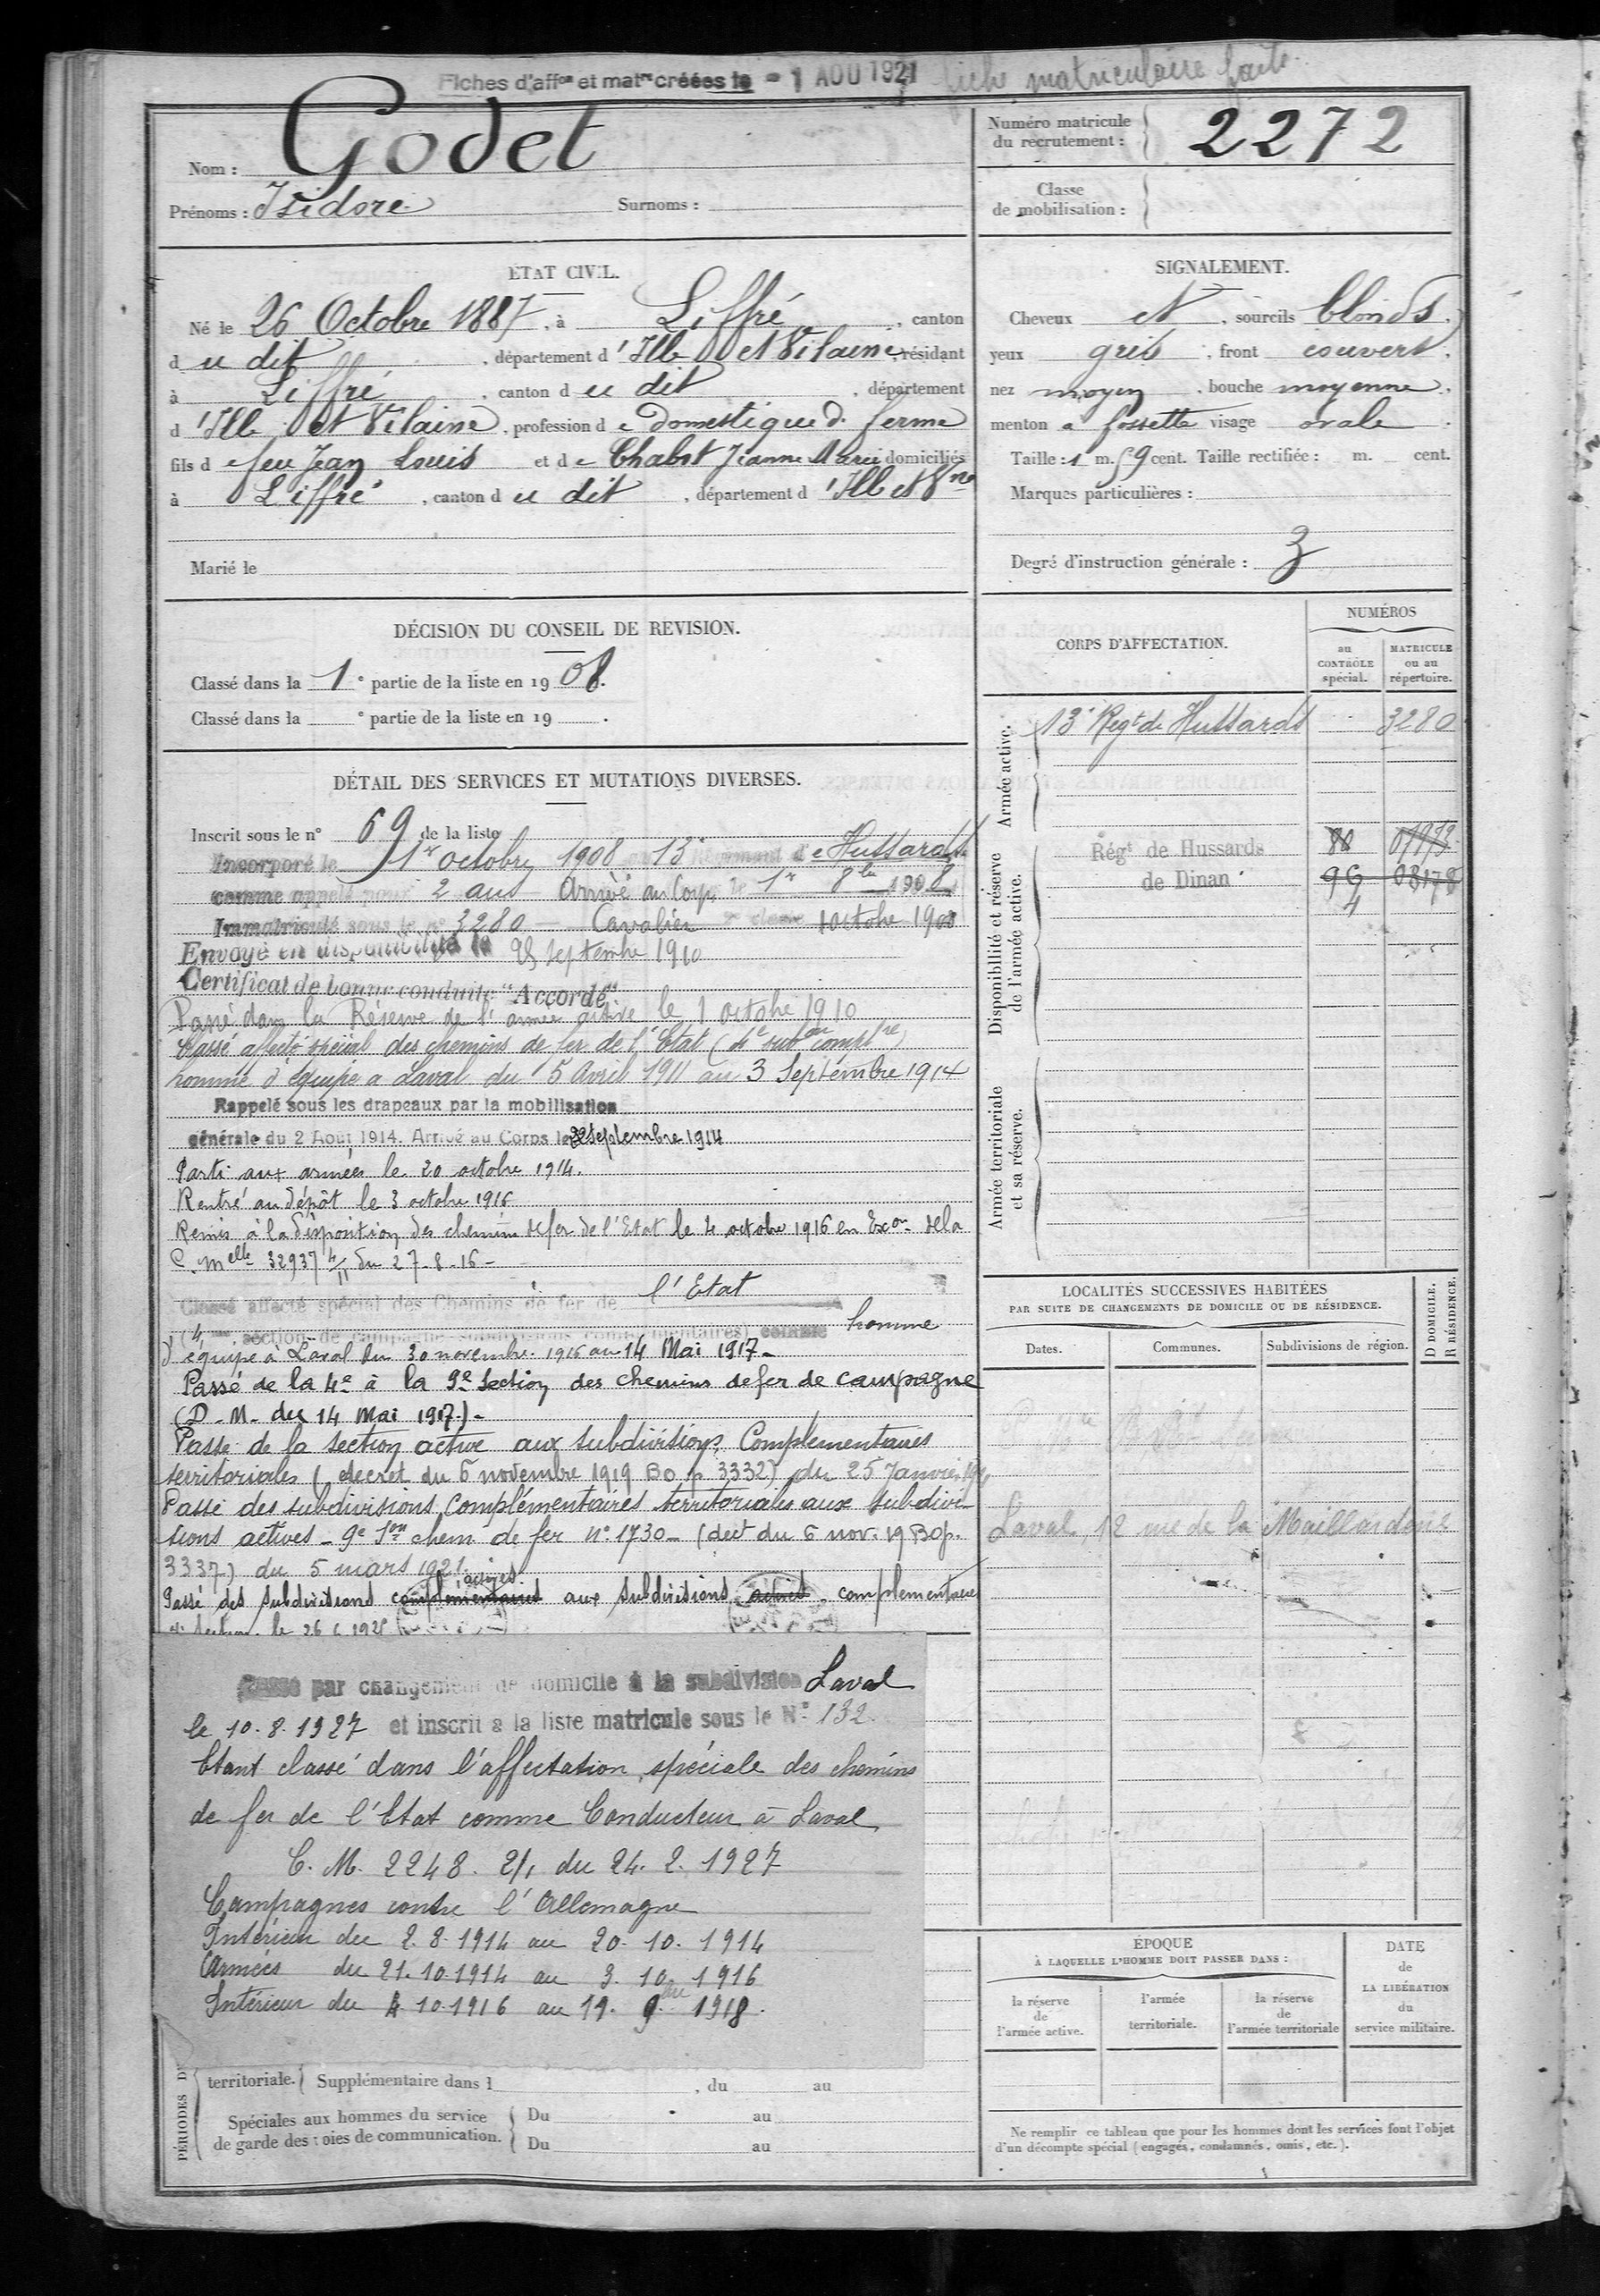 Fiches d'affon et matre créées le - 1 AOU 1921 fiche matriculaire faite.
Nom : Godet
Prénoms : Isidore Surnoms :
Numéro matricule du recrutement : 2272
Classe de mobilisation :
ÉTAT CIVIL.
Né le 26 Octobre 1887, à Liffré, canton
du dit, département d'Ille et Vilaine, résidant
à Liffré, canton du dit, département
d'Ille et Vilaine, profession de domestique d. ferme
fils de feu Jean Louis et de Chabot Jeanne Marie domiciliés
à Liffré, canton du dit, département d'Ill et Vne
Marié le
SIGNALEMENT.
Cheveux et, sourcils blonds.
yeux gris, front couvert.
nez moyen, bouche moyenne.
menton à fossette visage ovale.
Taille : 1 m. 59 cent. Taille rectifiée : m. cent.
Marques particulières :
Degré d'instruction générale : 3
DÉCISION DU CONSEIL DE REVISION.
Classé dans la 1e partie de la liste en 1908.
Classé dans la e partie de la liste en 19 .
CORPS D'AFFECTATION.
NUMÉROS
au CONTRÔLE spécial.
MATRICULE ou au répertoire.
Armée active.
13e Regt de Hussards 3280
Disponibilité et réserve de l'armée active.
Régt de Hussards
de Dinan
Armée territoriale et sa réserve.
DÉTAIL DES SERVICES ET MUTATIONS DIVERSES.
Inscrit sous le n° 69 de la liste
Incorporé le 1er octobre 1908 au 13e Régiment de Hussards
comme appelé pour 2 ans Arrivé au Corps le 1er 8bre 1908
Immatriculé sous le n° 3280 - Cavalier 2e classe 1 octobre 1908
Envoyé en disponibilité le 25 septembre 1910
Certificat de bonne conduite "Accordé"
Passé dans la Réserve de l'armée active le 1 octobre 1910
Classé affecté spécial des chemins de fer de l'Etat (4e subon complre)
homme d'équipe a Laval du 5 Avril 1911 au 3 Septembre 1914
Rappelé sous les drapeaux par la mobilisation
générale du 2 Août 1914. Arrivé au Corps le 22 septembre 1914
Parti aux armées le 20 octobre 1914.
Rentré au dépôt le 3 octobre 1916
Remis à la disposition des chemins de fer de l'Etat le 4 octobre 1916 en Exon de la
C. Melle 32937 4/11 du 27-8-16 -
Classé affecté spécial des Chemins de fer de l'Etat
(4me section de campagne subdivisions complémentaires) comme homme
d'équipe à Laval du 30 novembre 1916 au 14 Mai 1917 -
Passé de la 4e à la 9e Section des chemins de fer de campagne
(D. M. du 14 Mai 1917.) -
Passé de la section active aux subdivisions Complémentaires
territoriales (décret du 6 novembre 1919 BO p 3332) du 25 Janvier
Passé des subdivisions complémentaires territoriales aux subdivi-
sions actives - 9e Son chem de fer n° 1730 - (dect du 6 nov. 19 BOp.
3337) du 5 mars 1921.
Passé des subdivisions complémentaires actives aux subdivisions actives complémentaires
Passé par changement de domicile à la subdivision Laval
le 10.8.1927 et inscrit à la liste matricule sous le N° 132.
Etant classé dans l'affectation spéciale des chemins
de fer de l'Etat comme Conducteur à Laval
C. M. 2248. 2/1 du 24. 2. 1927
Campagnes contre l'Allemagne
Intérieur du 2. 8. 1914 au 20. 10. 1914
Armées du 21. 10. 1914 au 3. 10. 1916
Intérieur du 4. 10. 1916 au 19. 9. 1918.
PÉRIODES D
territoriale. Supplémentaire dans l , du au
Spéciales aux hommes du service de garde des voies de communication. Du au
Du au
LOCALITÉS SUCCESSIVES HABITÉES
PAR SUITE DE CHANGEMENTS DE DOMICILE OU DE RÉSIDENCE.
Dates. Communes. Subdivisions de région. D DOMICILE. R RÉSIDENCE.
Laval, 12 rue de la Maillarderie
ÉPOQUE
À LAQUELLE L'HOMME DOIT PASSER DANS :
la réserve de l'armée active.
l'armée territoriale.
la réserve de l'armée territoriale
DATE de LA LIBÉRATION du service militaire.
Ne remplir ce tableau que pour les hommes dont les services font l'objet
d'un décompte spécial (engagés, condamnés, omis, etc.).